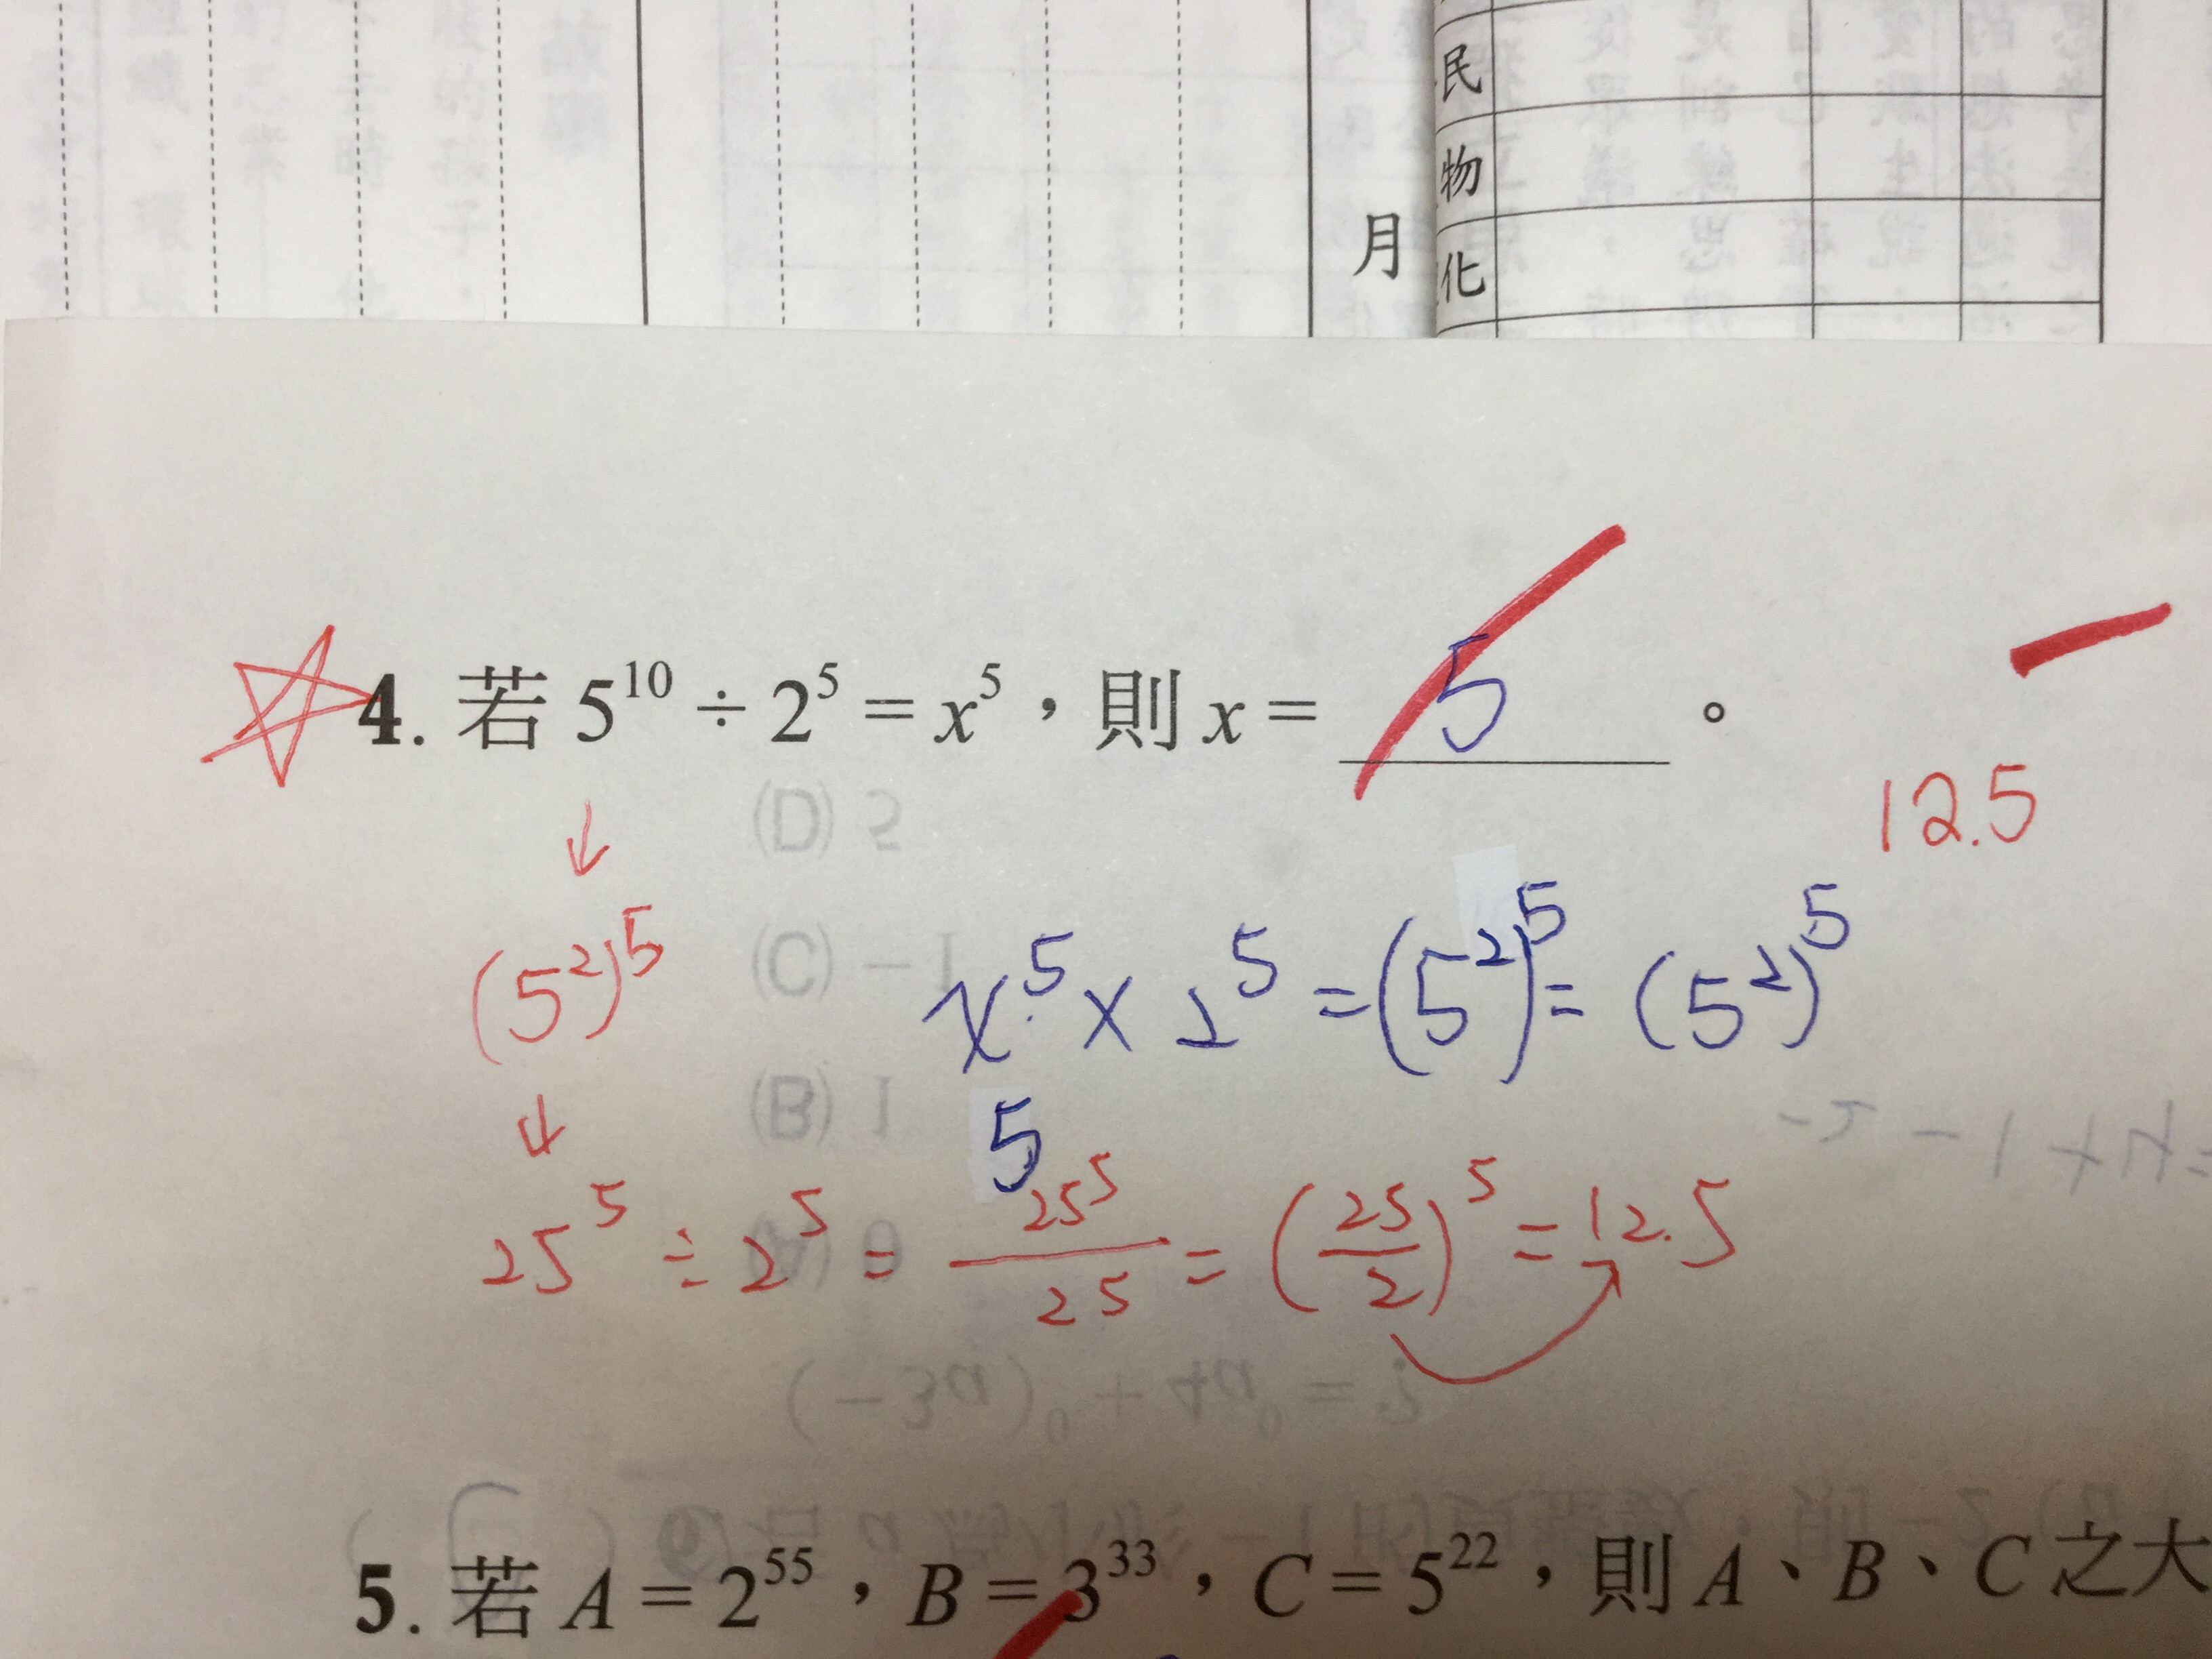 民
物
月
化
4. 若 5^10 ÷ 2^5 = x^5，則 x = 5 。
12.5
↓
(5^2)^5
x^5 × 2^5 = (5^2)^5 = (5^2)^5
↓
5
25^5 ÷ 2^5 = 25^5/25 = (25/2)^5 = 12.5
5. 若 A = 2^55，B = 3^33，C = 5^22，則 A、B、C 之大